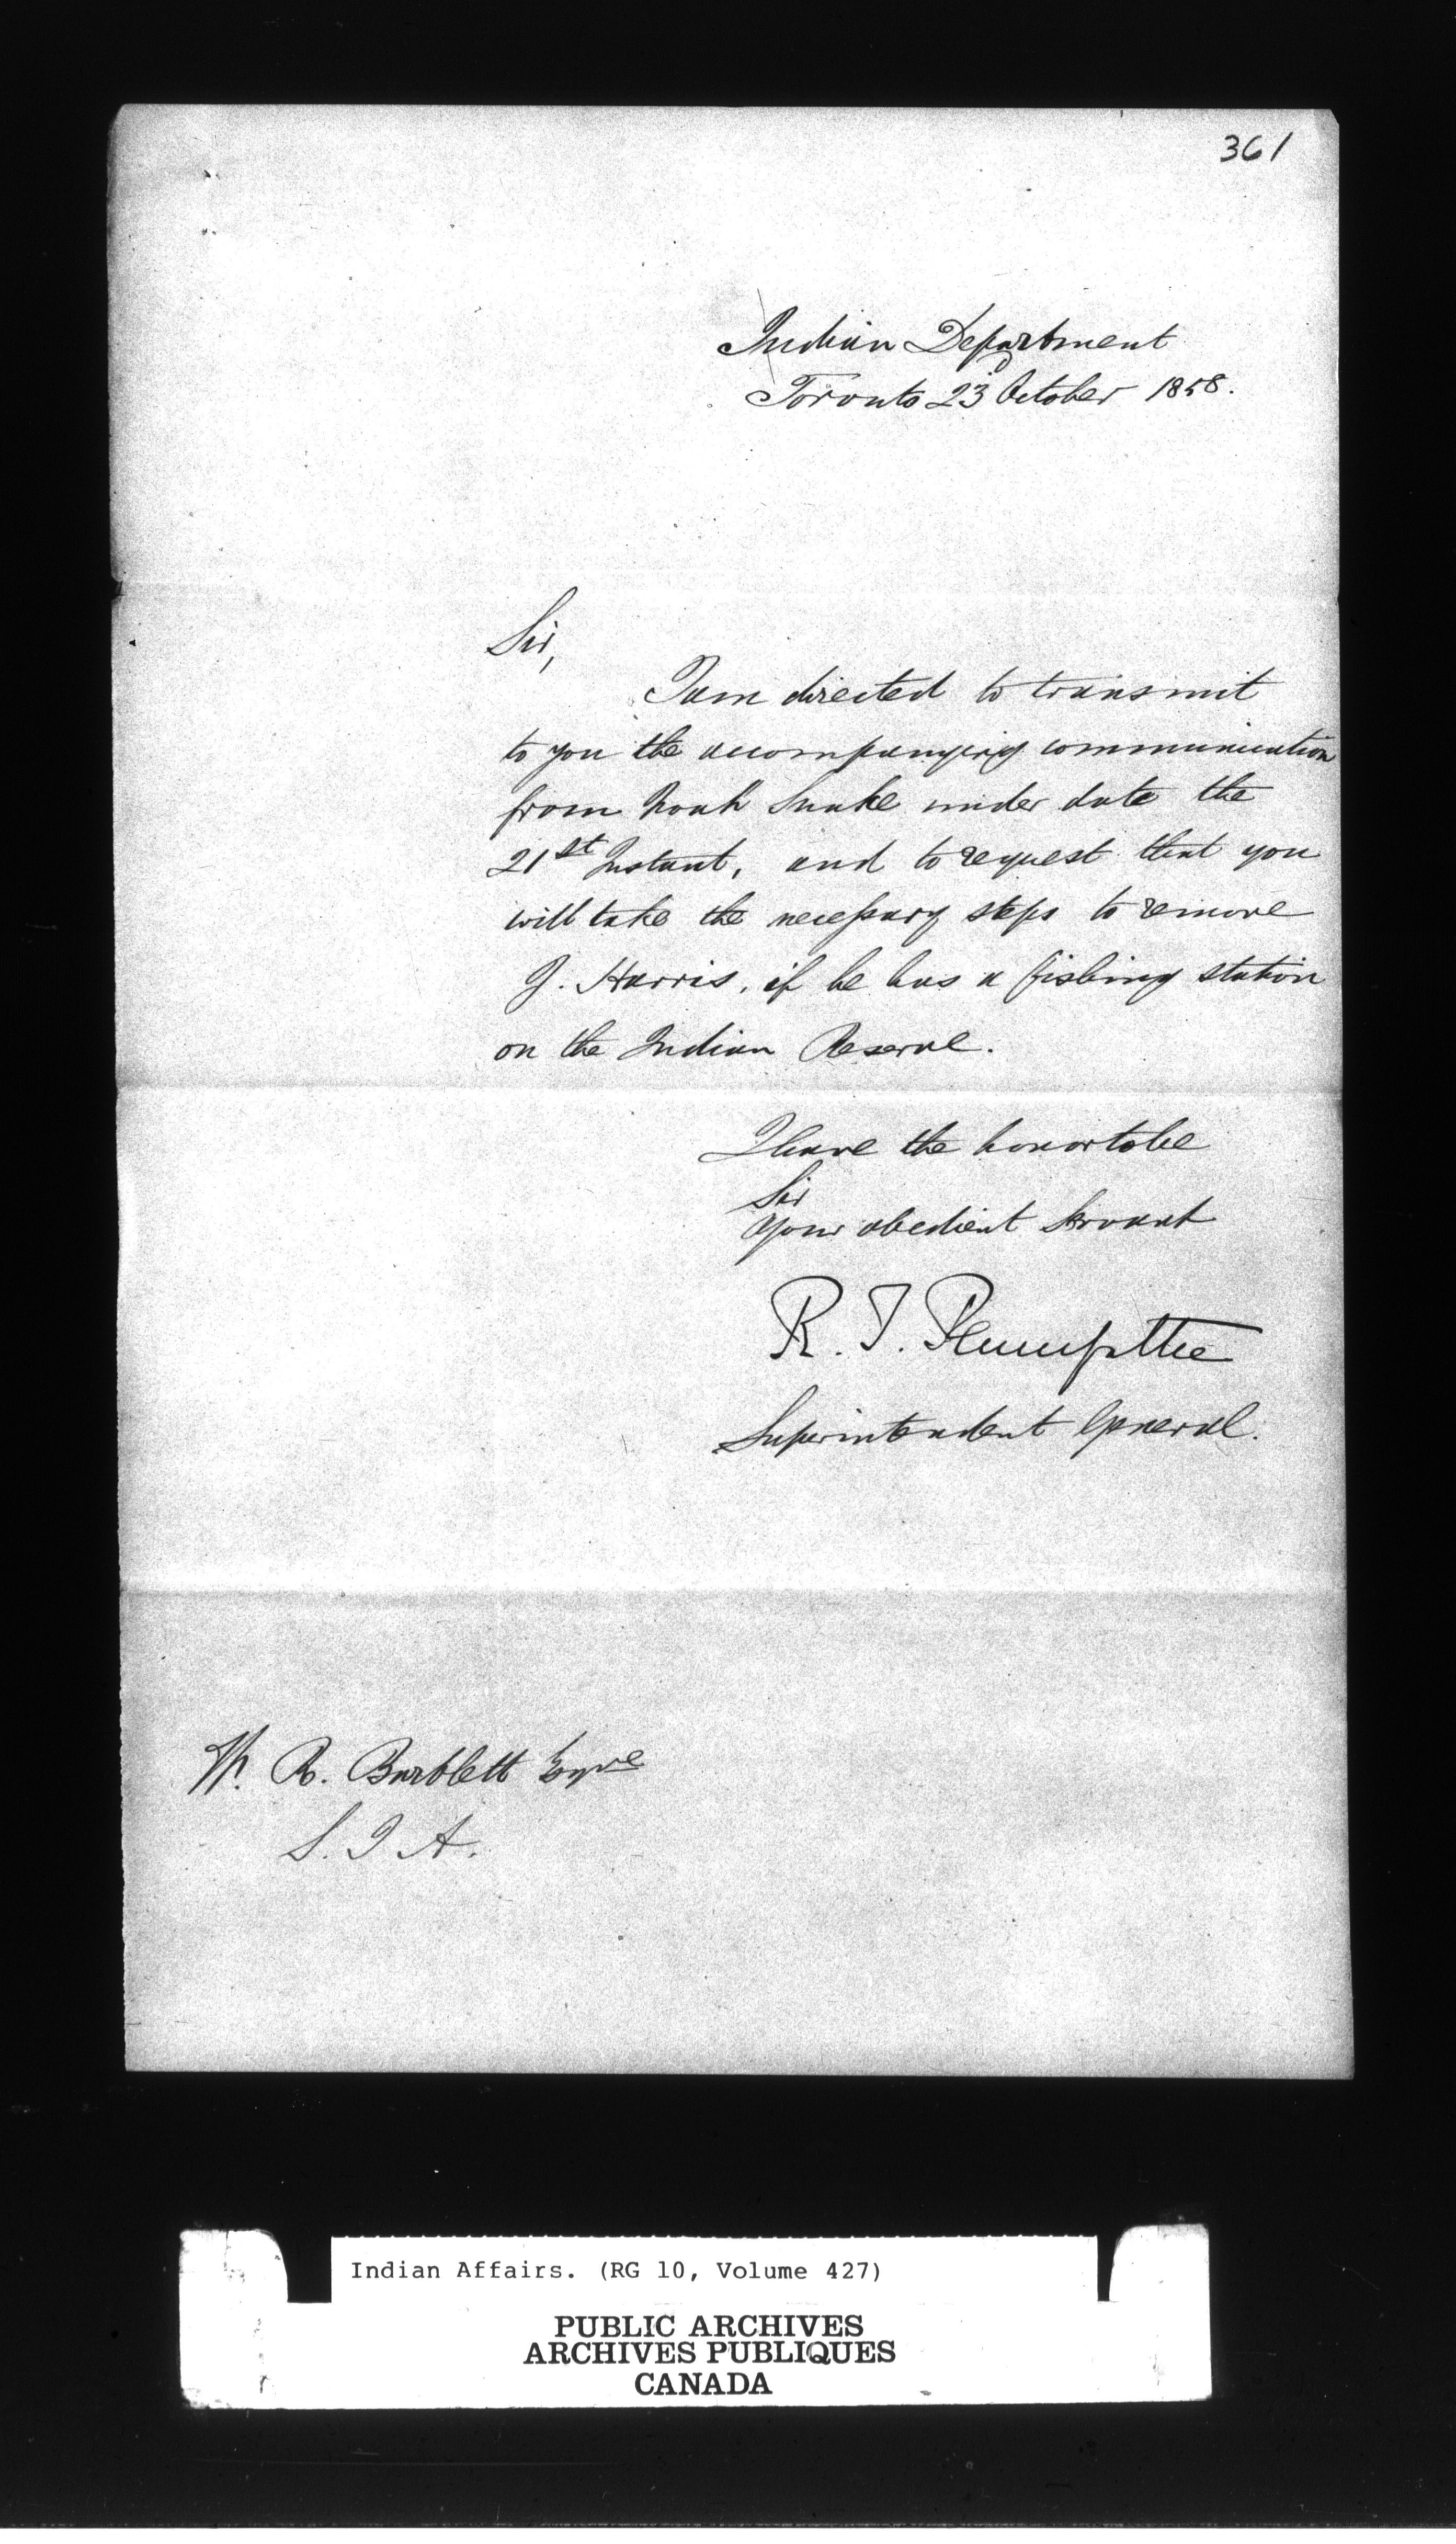 361
Indian Department
Toronto 23d October 1858.
Sir,
I am directed to transmit
to you the accompanying communication
from Noah Snake under date the
21st Instant, and to request that you
will take the necessary steps to remove
J. Harris, if he has a fishing station
on the Indian Reserve.
I have the honor to be
Sir
Your obedient Servant
R. T. Pennefather
Superintendent General.
W. R. Bartlett Esqre
S. I A.
Indian Affairs. (RG 10, Volume 427)
PUBLIC ARCHIVES
ARCHIVES PUBLIQUES
CANADA